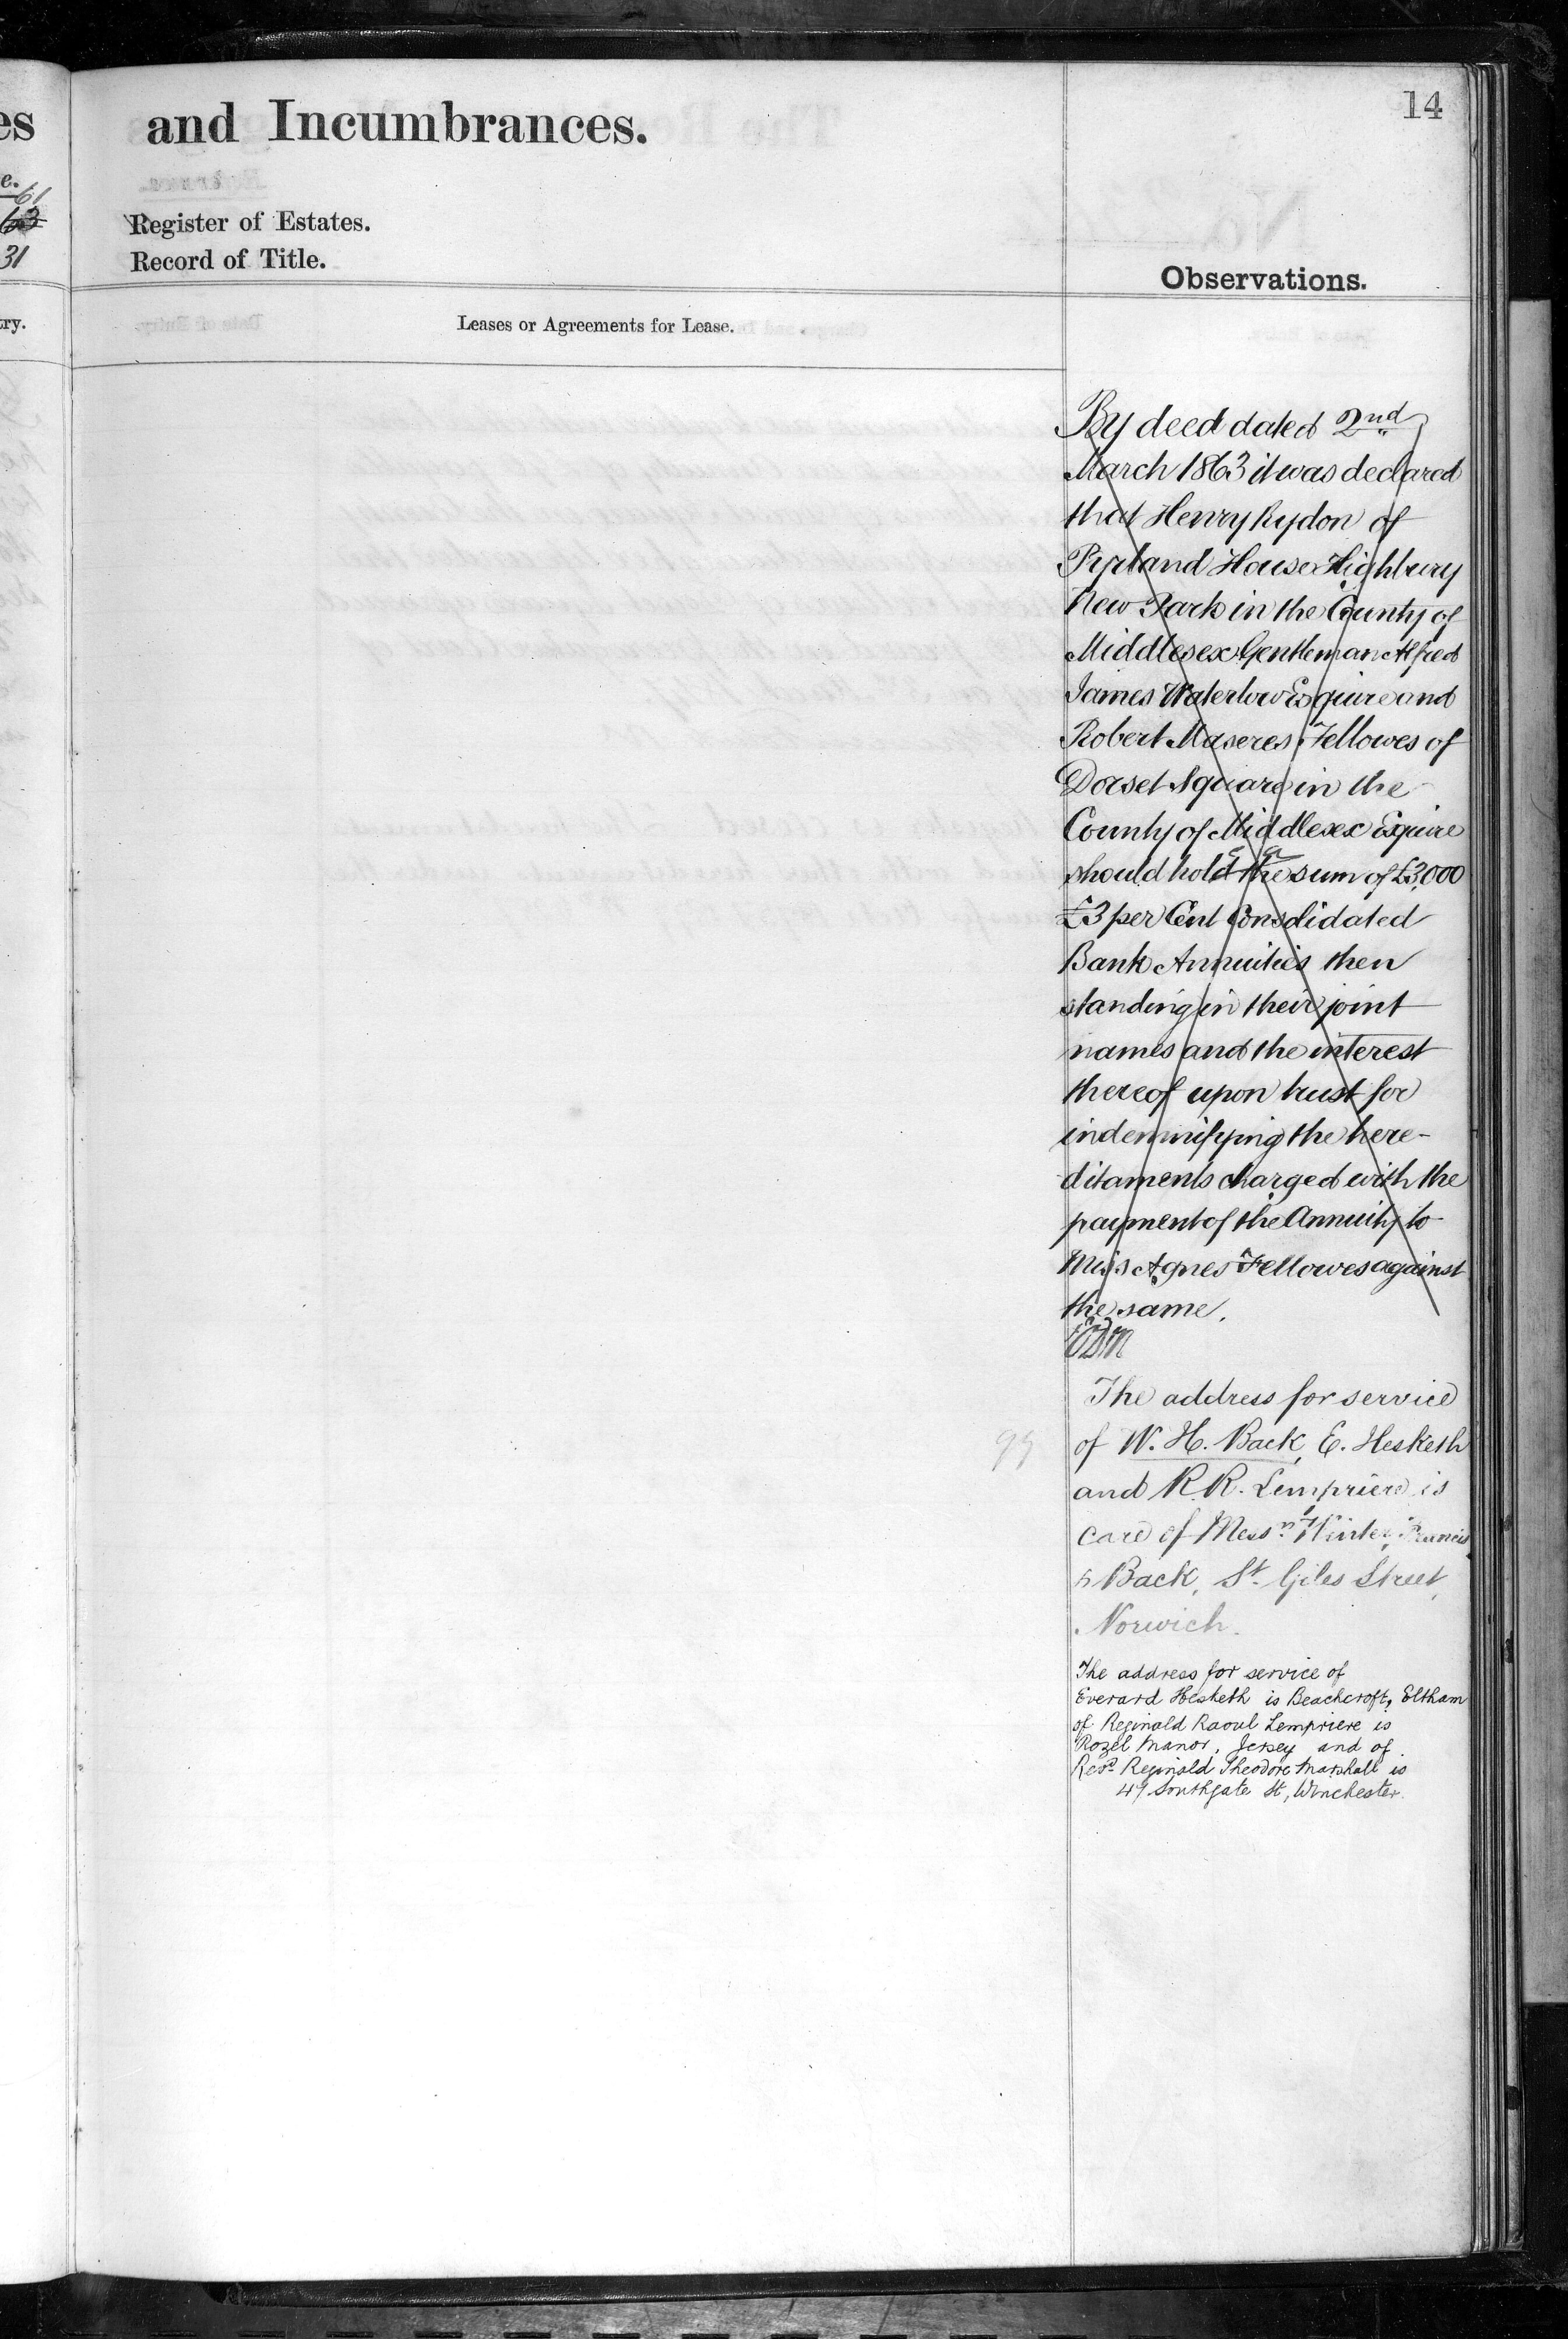 14
es
and Incumbrances.
e.
61
63
Register of Estates.
31
Record of Title.
Observations.
ry.
Leases or Agreements for Lease.
By deed dated 2nd
March 1863 it was declared
that Henry Rydon of
Pyrland House Highbury
New Park in the County of
Middlesex Gentleman Alfred
James Waterlow Esquire and
Robert Maseres Fellowes of
Dorset Square in the
County of Middlesex Esquire
should hold the sum of £3,000
£3 per Cent Consolidated
Bank Annuities then
standing in their joint
names and the interest
thereof upon trust for
indemnifying the here-
ditaments charged with the
payment of the Annuity to
Miss Agnes Fellowes against
the same.
The address for service
99
of W. H. Back, E. Hesketh
and R. R. Lempriere is
care of Messrs. Winter, Francis
& Back, St. Giles Street,
Norwich.
The address for service of
Everard Hesketh is Beachcroft, Eltham
of Reginald Raoul Lempriere is
Rozel Manor, Jersey and of
Revd. Reginald Theodore Marshall is
47 Southgate St, Winchester.